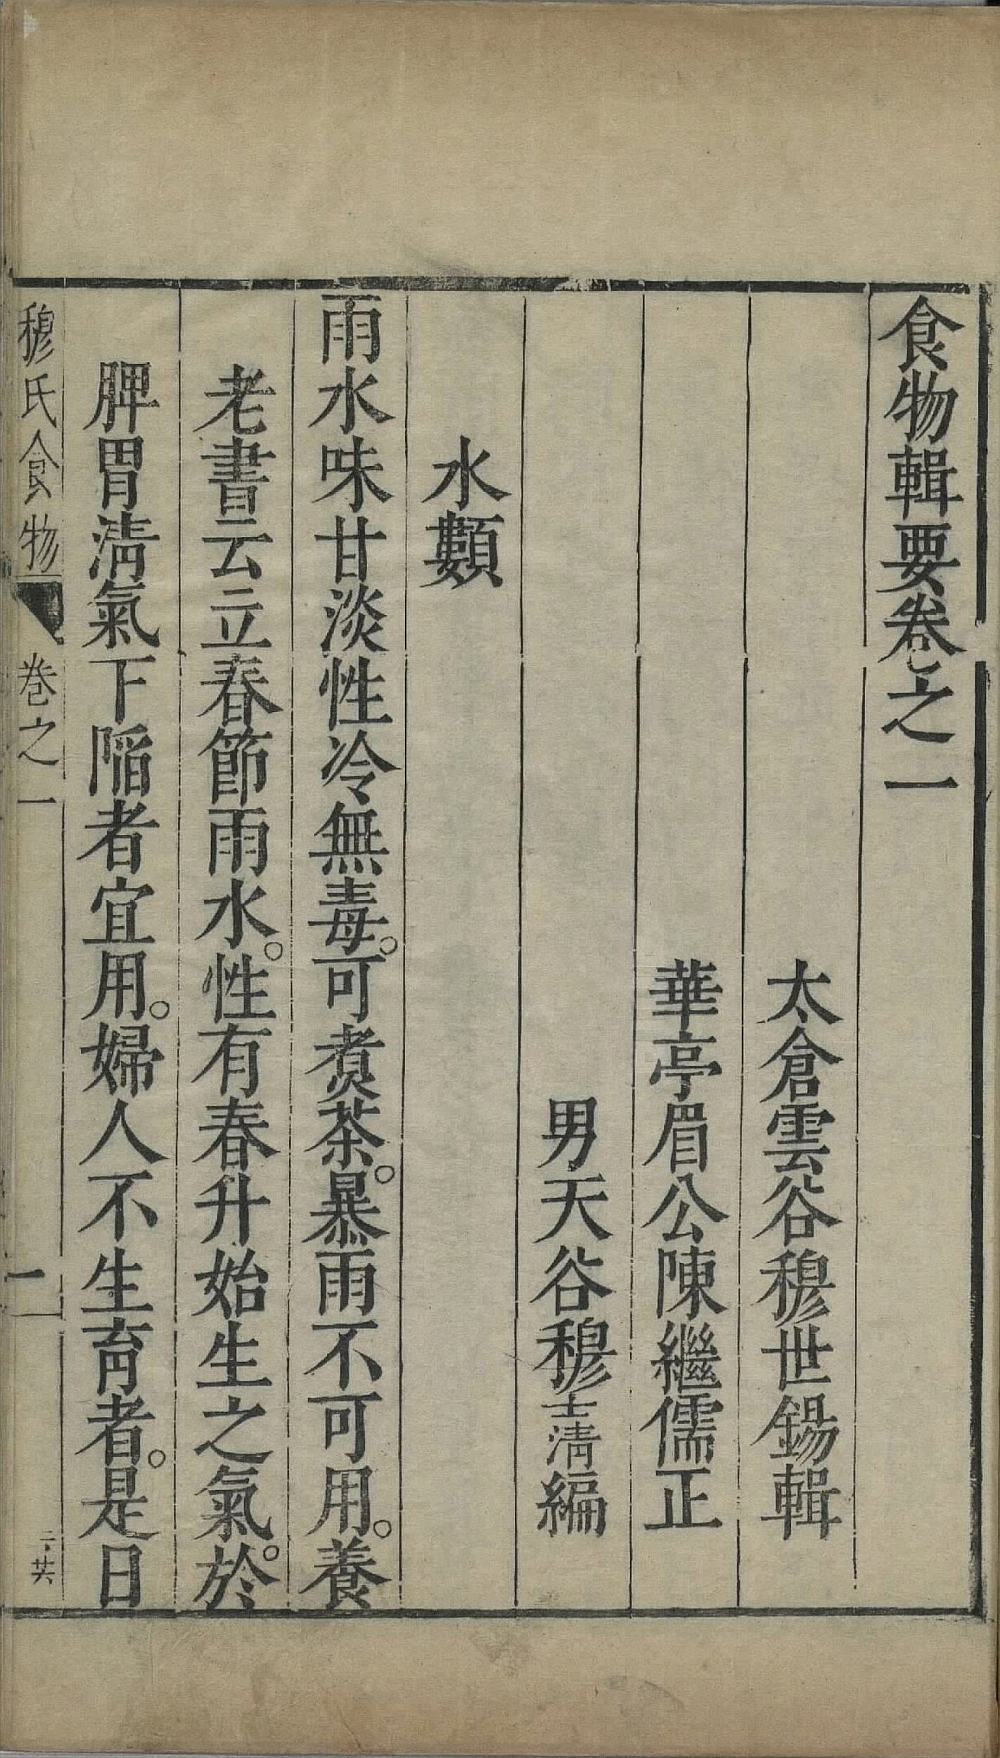 食物輯要卷之一
太倉雲谷穆世錫輯
華亭眉公陳繼儒正
男天谷穆士清編
水類
雨水味甘淡性冷無毒。可煑茶。暴雨不可用。養
老書云立春節雨水。性有春升始生之氣。於
脾胃清氣下陷者宜用。婦人不生育者。是日
穆氏食物 卷之一 一 二·廿六